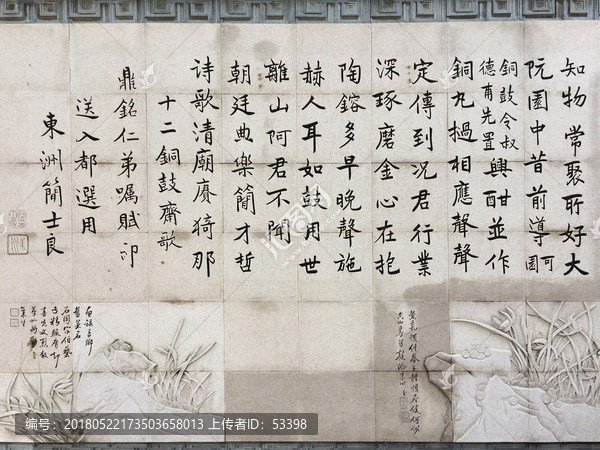 知物常聚所好大
阮園中昔前導可園
銅鼓令叔
德甫先置
興酣並作
銅丸撾相應聲聲
定傳到况君行業
深琢磨金心在抱
陶鎔多早晚聲施
赫人耳如鼓用世
離山阿君不聞
朝廷典樂簡才哲
詩歌清廟賡猗那
十二銅鼓齋歌
鼎銘仁弟囑賦即
送入都選用
東洲簡士良
编号：20180522173503658013 上传者ID：53398